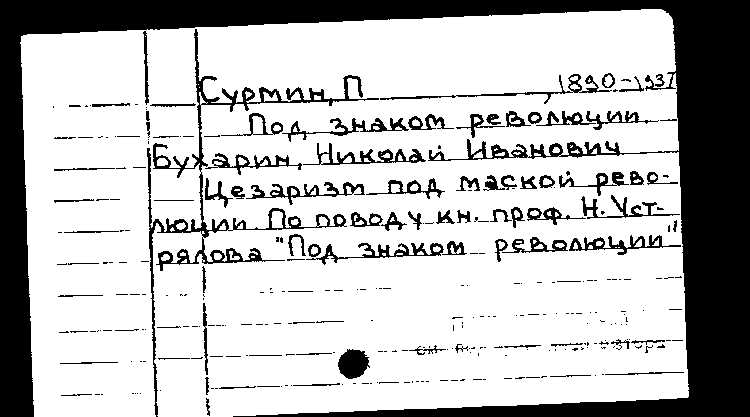 Сурмин, П , 1890-1937
Под знаком революции.
Бухарин, Николай Иванович
Цезаризм под маской рево-
люции. По поводу кн. проф. Н. Уст-
рялова "Под знаком революции"
см. автора